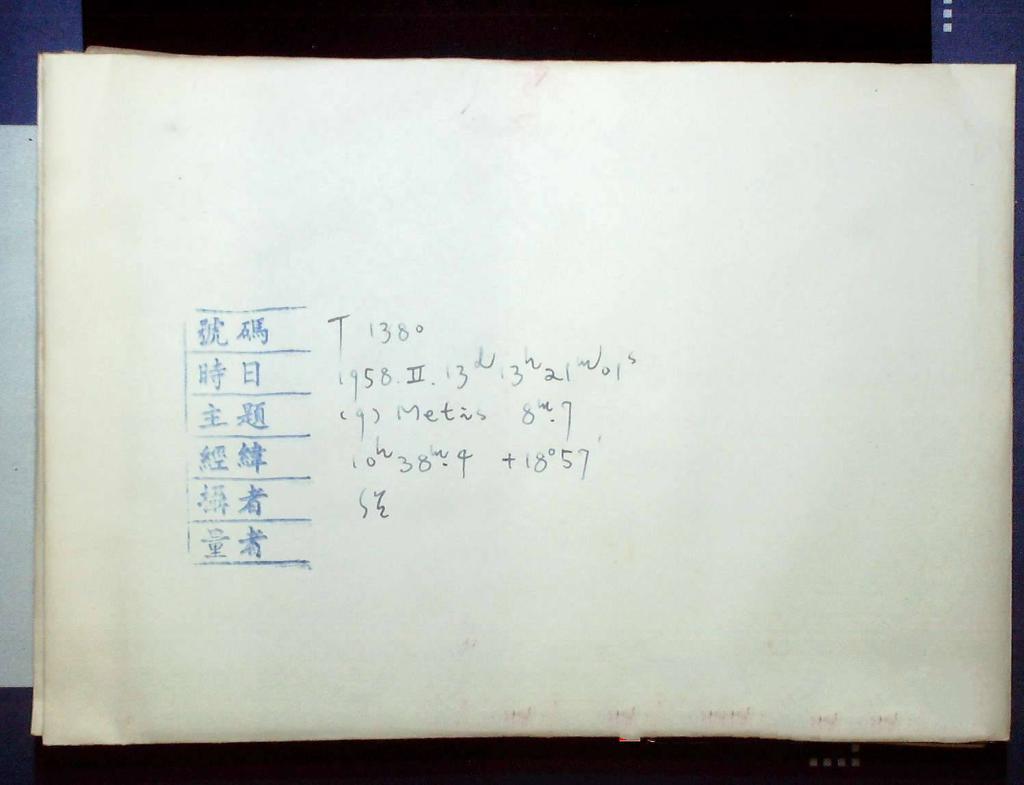 號碼 T 1380
時日 1958.II.13ᵈ13ʰ21ᵐ01ˢ
主題 (9) Metis 8ᵐ.7
經緯 10ʰ38ᵐ.4 +18°57′
攝者
量者